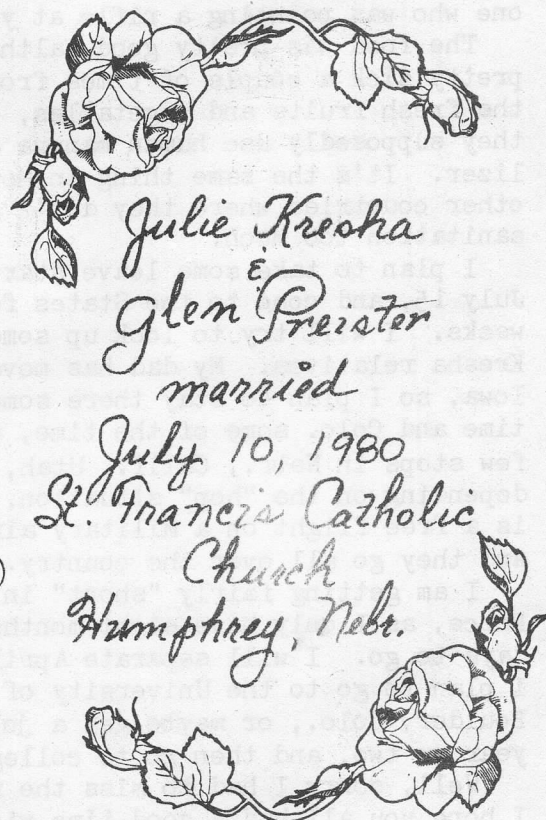 Julie Kresha
&
Glen Preister
married
July 10, 1980
St. Francis Catholic
Church
Humphrey, Nebr.